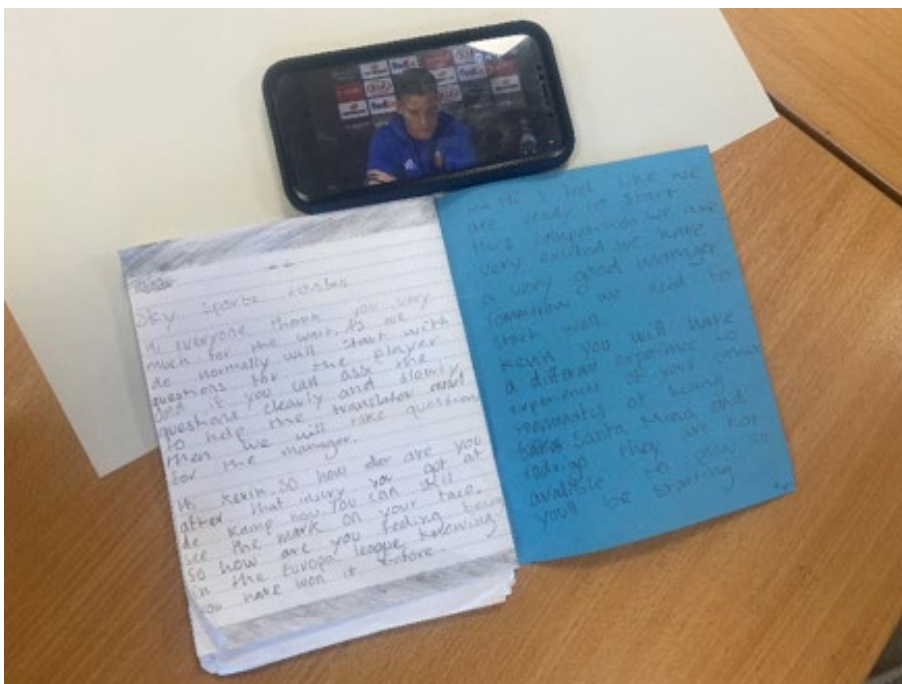 FedEx
KIA
FedEx
Sky Sports
Hi everyone thank you very
much for the wait. As we
do normally will start with
questions for the player
and if you can ask the
questions clearly and slowly
to help the translator and
then we will take question
for the manager.
Hi Kevin. So how are you
after that injury you got at
de Kamp now. You can still
see the mark on your face.
So how are you feeling being
in the Europa league knowing
you have won it before.
I feel like we
are ready to start
this competition we are
very exited we have
a very good manager
Tomorrow we need to
start well
Kevin you will have
a different experience to
experiences of your
teamates of being
Santa Mina and
rodrigo they are not
avalible to play so
youll be starting